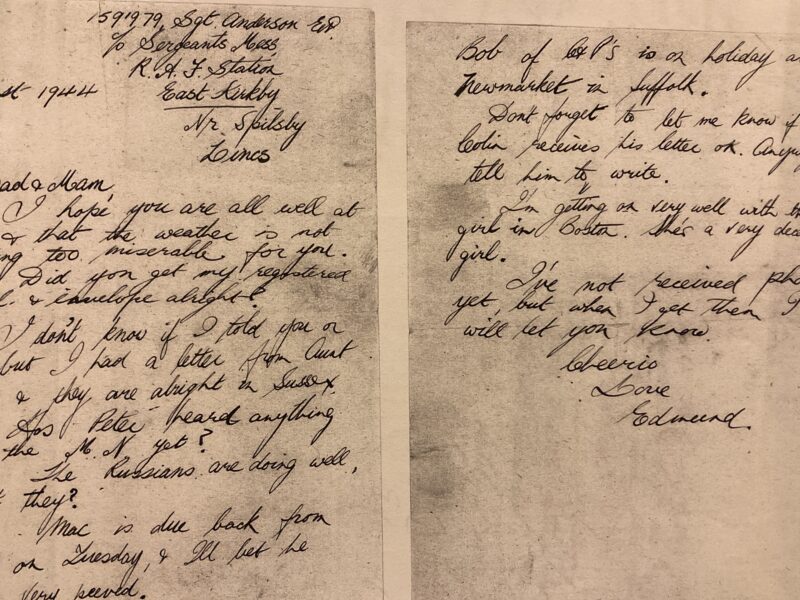 1591979, Sgt. Anderson E.P.
c/o Sergeants Mess,
R.A.F. Station
st 1944 East Kirkby
Nr. Spilsby
Lincs
ad & Mam
I hope you are all well at
& that the weather is not
ng too miserable for you.
Did you get my registered
& envelope alright?
I don't know if I told you or
but I had a letter from Aunt
& they are alright in Sussex.
Has Peter heard anything
the M.N yet?
The Russians are doing well,
they?
Mac is due back from
on Tuesday, & I'll bet he
very peeved.
Bob of is on holiday a
Newmarket in Suffolk.
Don't forget to let me know if
Colin receives his letter ok. Anyw
tell him to write.
I'm getting on very well with th
girl in Boston. She's a very dece
girl.
I've not received pho
yet, but when I get them I
will let you know.
Cheerio
Love
Edmund.